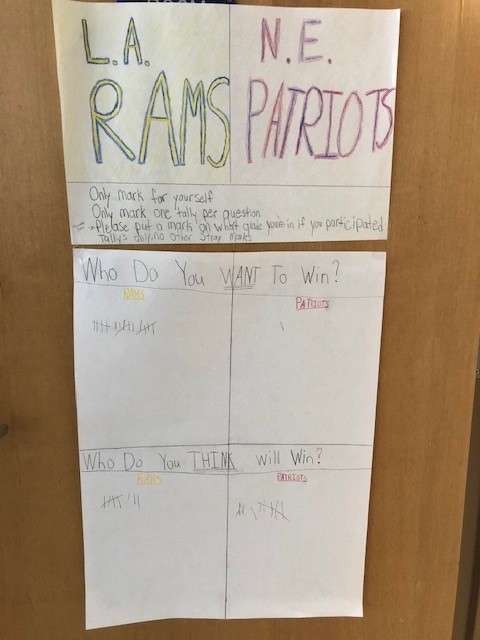 L.A.
RAMS
N.E.
PATRIOTS
Only mark for yourself
Only mark one tally per question
Please put a mark on what grade you're in if you participated
Tally's only, no other stray marks
Who Do You WANT To Win?
RAMS
PATRIOTS
Who Do You THINK Will Win?
RAMS
PATRIOTS